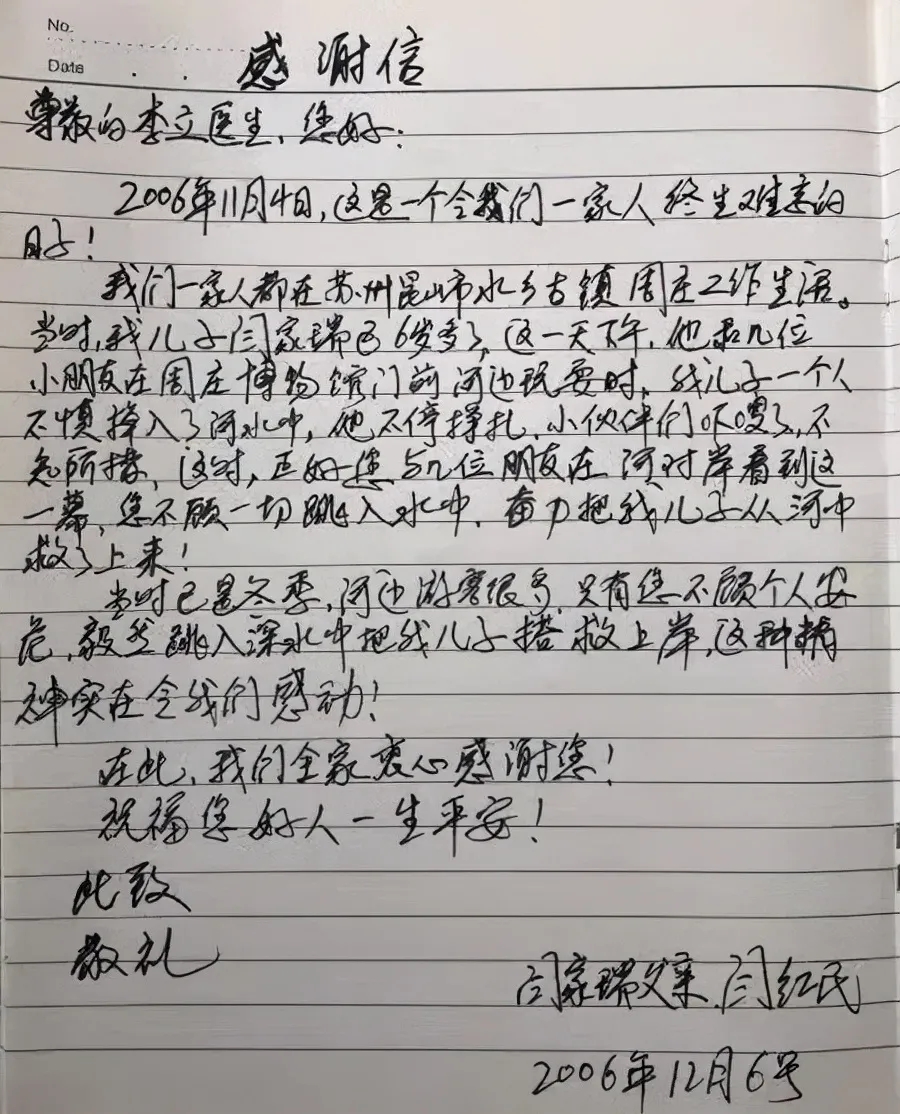 No.
Date
感谢信
尊敬的李立医生、您好:
2006年11月4日,这是一个令我们一家人终生难忘的
日子!
我们一家人都在苏州昆山市水乡古镇周庄工作生活。
当时,我儿子闫家瑞已6岁多了,这一天下午,他和几位
小朋友在周庄博物馆门前河边玩耍时,我儿子一个人
不慎掉入了河水中,他不停挣扎、小伙伴们吓傻了,不
知所措,这时,正好您与几位朋友在河对岸看到这
一幕,您不顾一切跳入水中、奋力把我儿子从河中
救了上来!
当时已是冬季,河边游客很多,只有您不顾个人安
危,毅然跳入深水中把我儿子搭救上岸,这种精
神实在令我们感动!
在此、我们全家衷心感谢您!
祝福您好人一生平安!
此致
敬礼
闫家瑞父亲、闫红民
2006年12月6号